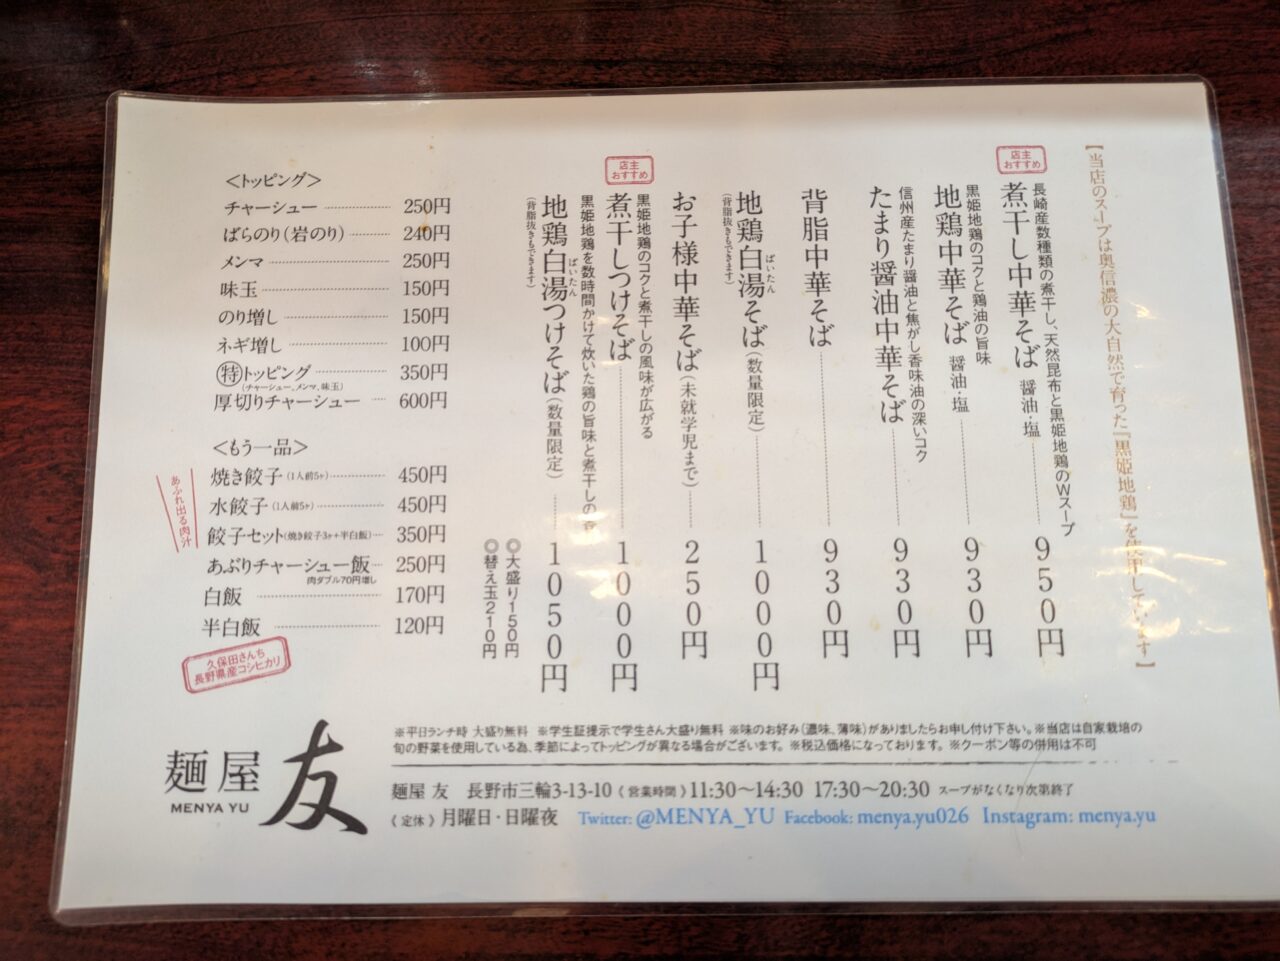 【当店のスープは奥信濃の大自然で育った『黒姫地鶏』を使用しています】
店主
おすすめ
長崎産数種類の煮干し、天然昆布と黒姫地鶏のWスープ
煮干し中華そば 醤油・塩 950円
黒姫地鶏のコクと鶏油の旨味
地鶏中華そば 醤油・塩 930円
信州産たまり醤油と焦がし香味油の深いコク
たまり醤油中華そば 930円
背脂中華そば 930円
ぱいたん
地鶏白湯そば(数量限定) 1000円
(背脂抜きもできます)
お子様中華そば(未就学児まで) 250円
店主
おすすめ
黒姫地鶏のコクと煮干しの風味が広がる
煮干しつけそば 1000円
黒姫地鶏を数時間かけて炊いた鶏の旨味と煮干しの
ぱいたん
地鶏白湯つけそば(数量限定) 1050円
(背脂抜きもできます)
◎大盛り150円
◎替え玉210円
<トッピング>
チャーシュー 250円
ばらのり(岩のり) 240円
メンマ 250円
味玉 150円
のり増し 150円
ネギ増し 100円
特トッピング 350円
(チャーシュー、メンマ、味玉)
厚切りチャーシュー 600円
<もう一品>
あふれ出る肉汁
焼き餃子(1人前5ヶ) 450円
水餃子(1人前5ヶ) 450円
餃子セット(焼き餃子3ヶ+半白飯) 350円
あぶりチャーシュー飯 250円
肉ダブル70円増し
白飯 170円
半白飯 120円
久保田さんち
長野県産コシヒカリ
麺屋 友
MENYA YU
※平日ランチ時 大盛り無料 ※学生証提示で学生さん大盛り無料 ※味のお好み(濃味、薄味)がありましたらお申し付け下さい。※当店は自家栽培の
旬の野菜を使用している為、季節によってトッピングが異なる場合がございます。※税込価格になっております。※クーポン等の併用は不可
麺屋 友 長野市三輪3-13-10《営業時間》11:30〜14:30 17:30〜20:30 スープがなくなり次第終了
《定休》月曜日・日曜夜 Twitter: @MENYA_YU Facebook: menya.yu026 Instagram: menya.yu